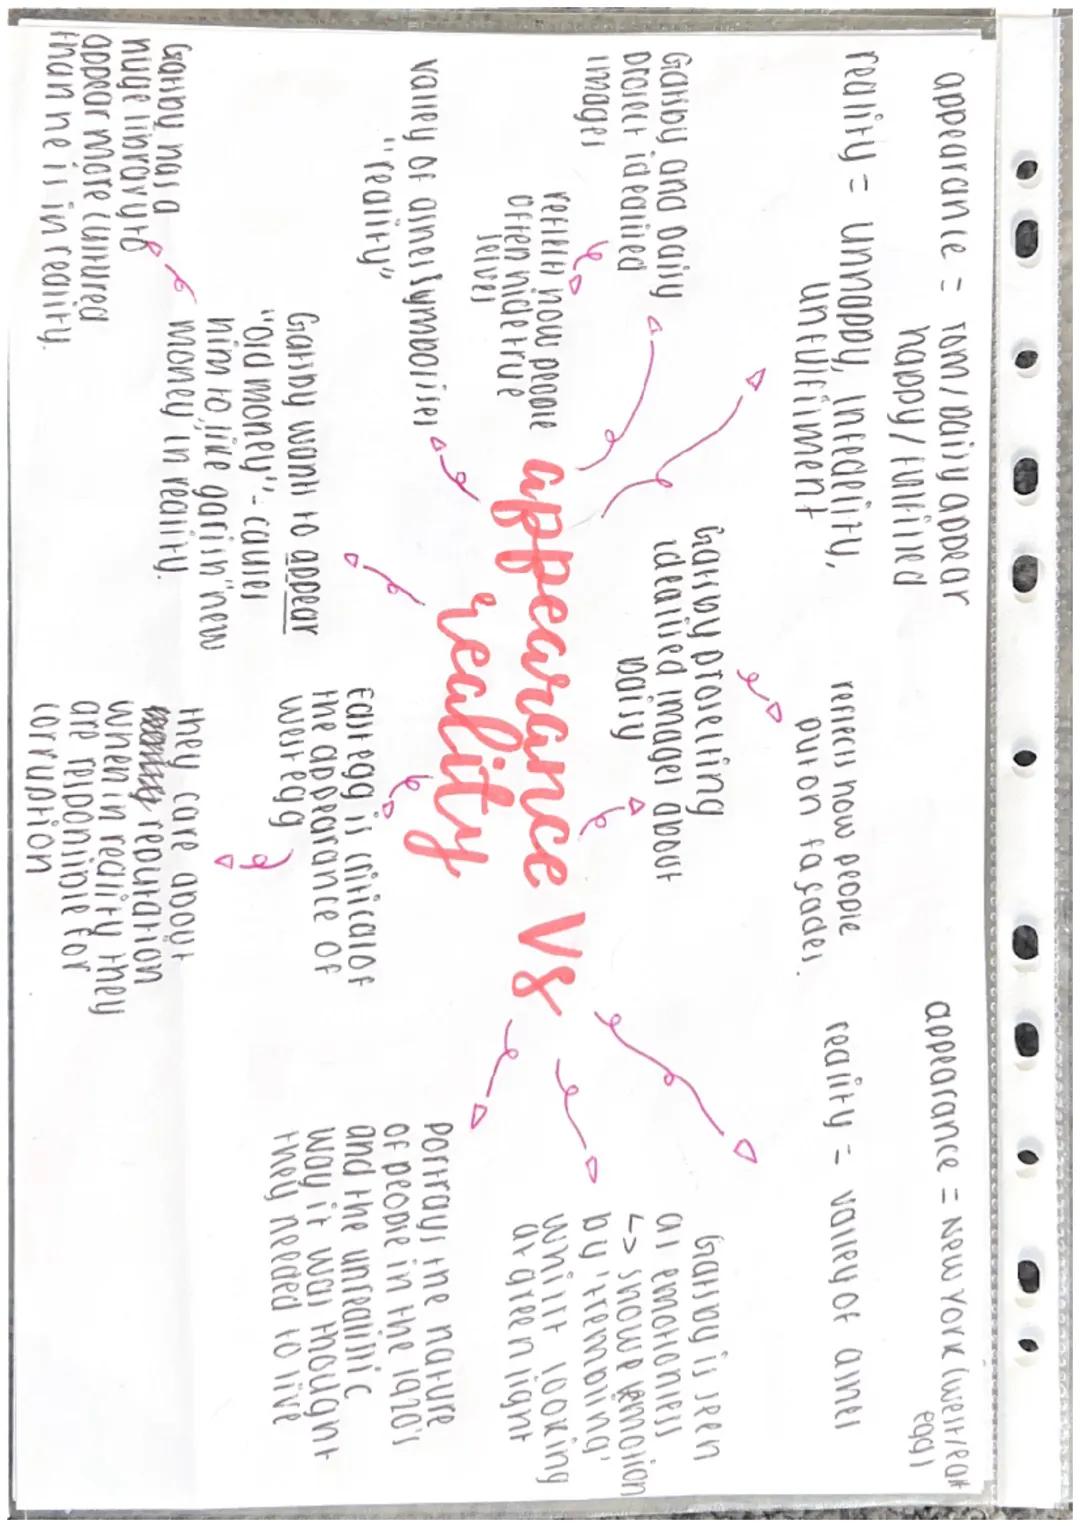 appearance = Tom/Daisy appear
happy/fulfilled
reality = unhappy, infedelity,
unfulfilment
reflects how people
put on façades.
appearance = New York (west/east
egg)
reality = valley of ashes
Gatsby and Daisy
project idealised
images
reflects how people
often hide true
selves
Gatsby projecting
idealised images about
Daisy
Gatsby is seen
as emotionless
↳ shows emotion
by 'trembling'
whilst looking
at green light
appearance Vs
reality
valley of ashes symbolises
"reality"
Gatsby wants to appear
"old money" - causes
him to live garish "new
money" in reality.
Gatsby has a
huge library to
appear more cultured
than he is in reality.
East egg is critical of
the appearance of
west egg
they care about
reputation
when in reality they
are responsible for
corruption
portrays the nature
of people in the 1920's
and the unrealistic
way it was thought
they needed to live